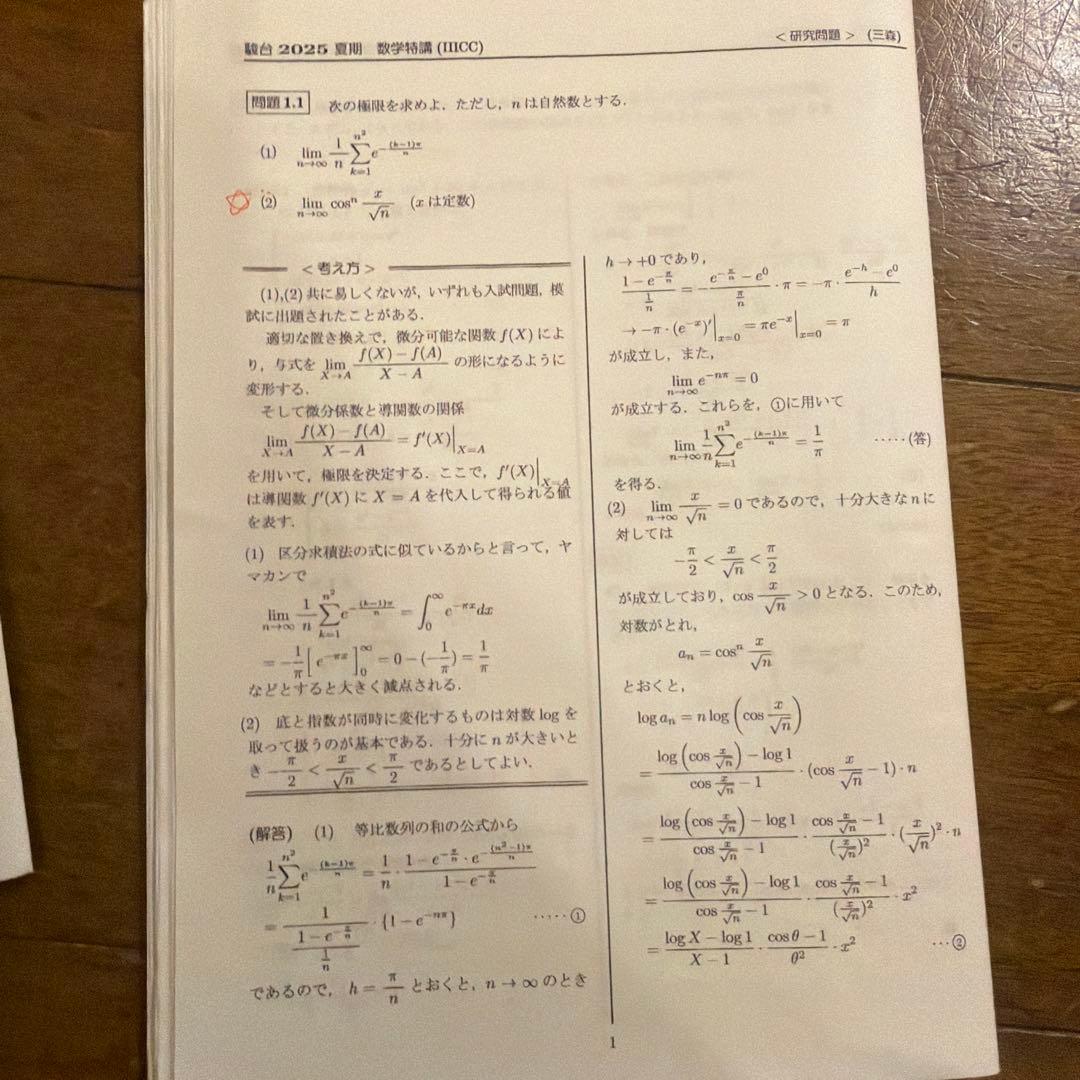 駿台 2025 夏期 数学特講 (IIICC)
＜研究問題＞ (三森)
問題 1.1 次の極限を求めよ．ただし，n は自然数とする．
(1) lim_{n→∞} \frac{1}{n} \sum_{k=1}^{n^2} e^{-\frac{(k-1)π}{n}}
(2) lim_{n→∞} cos^n \frac{x}{\sqrt{n}} (x は定数)
＜考え方＞
(1),(2) 共に易しくないが，いずれも入試問題，模
試に出題されたことがある．
適切な置き換えで，微分可能な関数 f(X) によ
り，与式を lim_{X→A} \frac{f(X)-f(A)}{X-A} の形になるように
変形する．
そして微分係数と導関数の関係
lim_{X→A} \frac{f(X)-f(A)}{X-A} = f'(X)|_{X=A}
を用いて，極限を決定する．ここで，f'(X)|_{X=A}
は導関数 f'(X) に X = A を代入して得られる値
を表す．
(1) 区分求積法の式に似ているからと言って，ヤ
マカンで
lim_{n→∞} \frac{1}{n} \sum_{k=1}^{n^2} e^{-\frac{(k-1)π}{n}} = \int_0^∞ e^{-πx} dx
= -\frac{1}{π} [e^{-πx}]_0^∞ = 0 - (-\frac{1}{π}) = \frac{1}{π}
などとすると大きく減点される．
(2) 底と指数が同時に変化するものは対数 log を
取って扱うのが基本である．十分に n が大きいと
き -\frac{π}{2} < \frac{x}{\sqrt{n}} < \frac{π}{2} であるとしてよい．
(解答) (1) 等比数列の和の公式から
\frac{1}{n} \sum_{k=1}^{n^2} e^{-\frac{(k-1)π}{n}} = \frac{1}{n} · \frac{1-e^{-\frac{π}{n}} · e^{-\frac{(n^2-1)π}{n}}}{1-e^{-\frac{π}{n}}}
= \frac{1}{\frac{1-e^{-\frac{π}{n}}}{\frac{1}{n}}} · {1-e^{-nπ}} ·····①
であるので，h = \frac{π}{n} とおくと，n → ∞ のとき
h → +0 であり，
\frac{1-e^{-\frac{π}{n}}}{\frac{1}{n}} = -\frac{e^{-\frac{π}{n}}-e^0}{\frac{π}{n}} · π = -π · \frac{e^{-h}-e^0}{h}
→ -π · (e^{-x})'|_{x=0} = πe^{-x}|_{x=0} = π
が成立し，また，
lim_{n→∞} e^{-nπ} = 0
が成立する．これらを，①に用いて
lim_{n→∞} \frac{1}{n} \sum_{k=1}^{n^2} e^{-\frac{(k-1)π}{n}} = \frac{1}{π} ·····(答)
を得る．
(2) lim_{n→∞} \frac{x}{\sqrt{n}} = 0 であるので，十分大きな n に
対しては
-\frac{π}{2} < \frac{x}{\sqrt{n}} < \frac{π}{2}
が成立しており，cos \frac{x}{\sqrt{n}} > 0 となる．このため，
対数がとれ，
a_n = cos^n \frac{x}{\sqrt{n}}
とおくと，
log a_n = n log (cos \frac{x}{\sqrt{n}})
= \frac{log (cos \frac{x}{\sqrt{n}}) - log 1}{cos \frac{x}{\sqrt{n}} - 1} · (cos \frac{x}{\sqrt{n}} - 1) · n
= \frac{log (cos \frac{x}{\sqrt{n}}) - log 1}{cos \frac{x}{\sqrt{n}} - 1} · \frac{cos \frac{x}{\sqrt{n}} - 1}{(\frac{x}{\sqrt{n}})^2} · (\frac{x}{\sqrt{n}})^2 · n
= \frac{log (cos \frac{x}{\sqrt{n}}) - log 1}{cos \frac{x}{\sqrt{n}} - 1} · \frac{cos \frac{x}{\sqrt{n}} - 1}{(\frac{x}{\sqrt{n}})^2} · x^2
= \frac{log X - log 1}{X - 1} · \frac{cos θ - 1}{θ^2} · x^2 ···②
1